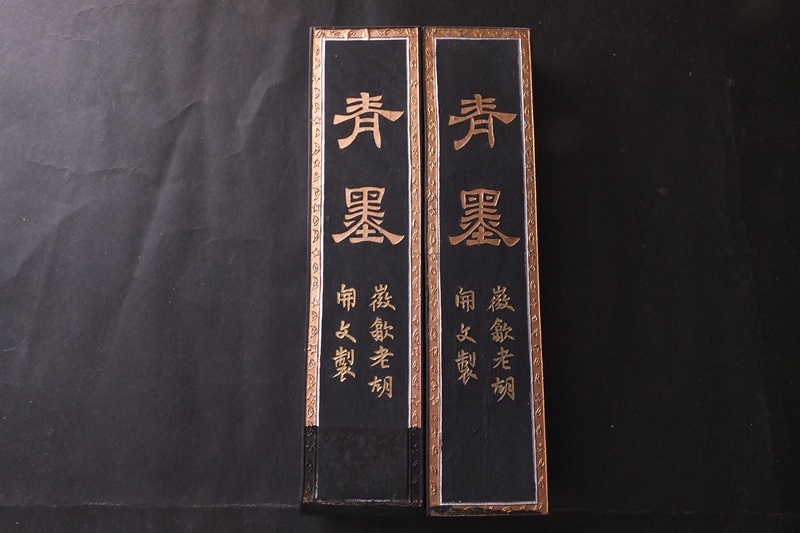 青墨
徽歙老胡
開文製
青墨
徽歙老胡
開文製